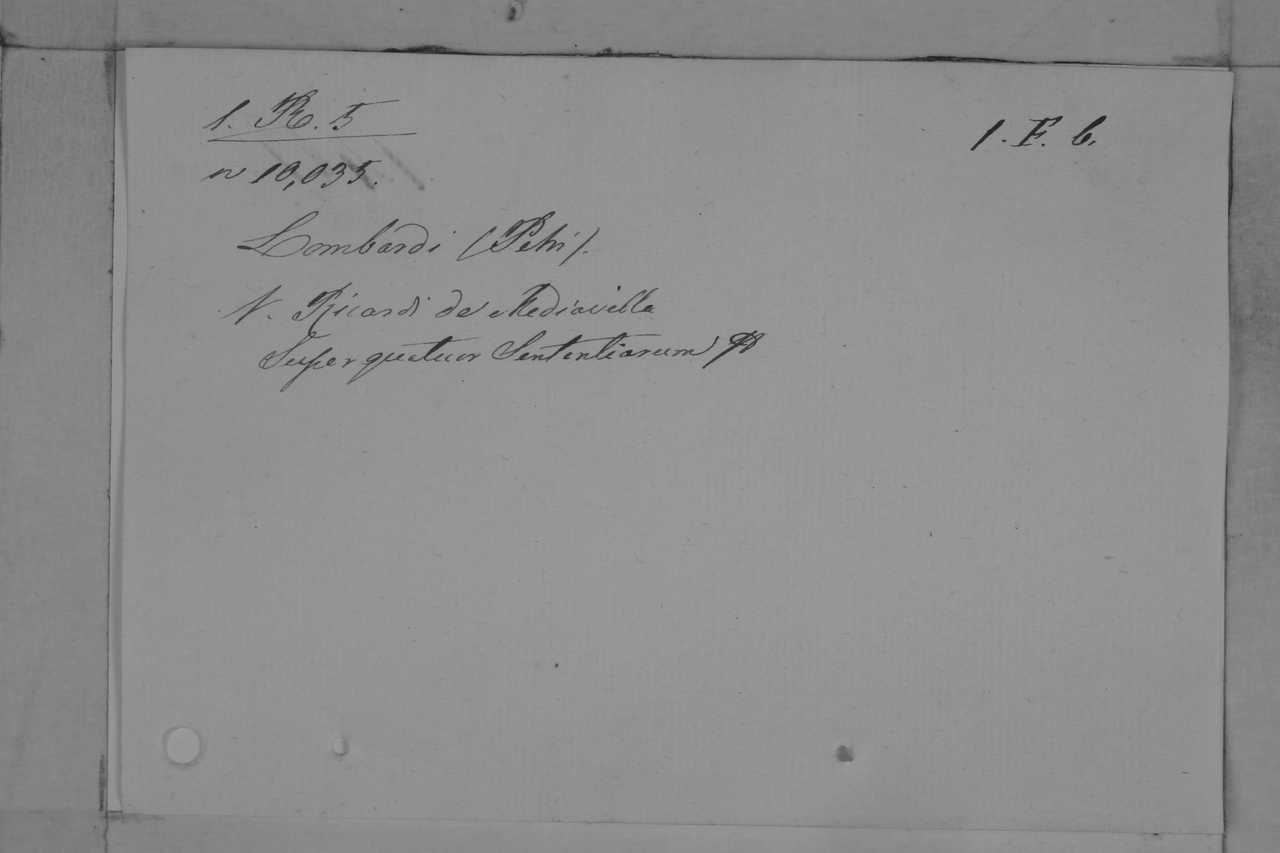 1. R. 5
1. F. 6.
n 10,035.
Lombardi (Petri).
V. Ricardi de Mediavilla
Super quatuor Sententiarum